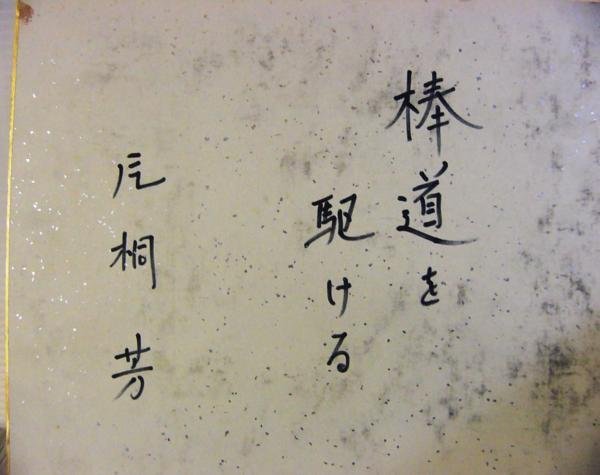 棒道を
駆ける
片桐芳